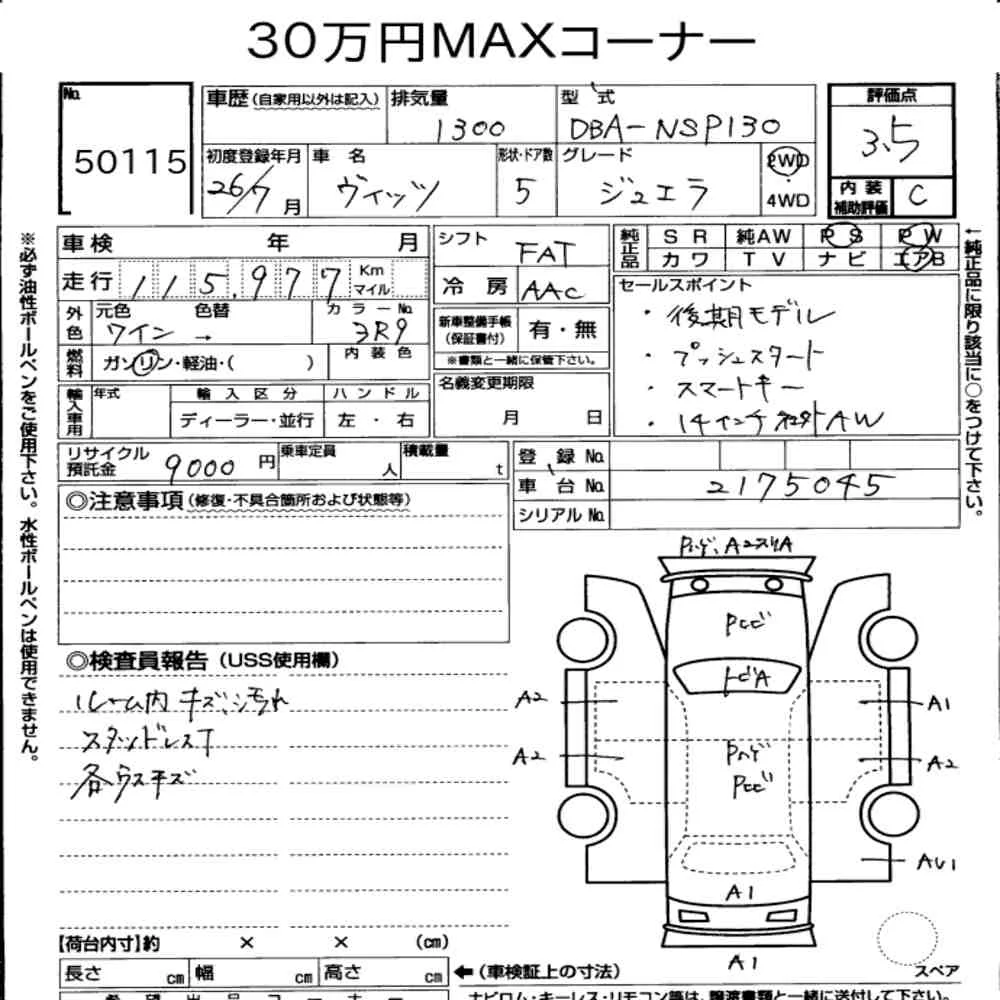 30万円MAXコーナー
No. 50115
車歴(自家用以外は記入) 排気量 1300
型式 DBA-NSP130
評価点 3.5
初度登録年月 26/7月
車名 ヴィッツ
形状・ドア数 5
グレード ジュエラ
2WD
4WD
内装補助評価 C
車検 年 月
シフト FAT
純正品 SR 純AW PS PW
カワ TV ナビ エアB
走行 115,977 Km マイル
冷房 AAC
セールスポイント
・後期モデル
・プッシュスタート
・スマートキー
・14インチ AW
外色 元色 ワイン → 色替
カラーNo. 3R9
新車整備手帳(保証書付) 有・無
※書類と一緒に保管下さい。
燃料 ガソリン・軽油・( )
内装色
名義変更期限 月 日
輸入車用 年式 輸入区分 ハンドル
ディーラー・並行 左・右
リサイクル預託金 9000円
乗車定員 人
積載量 t
登録No.
車台No. 2175045
シリアルNo.
◎注意事項(修復・不具合箇所および状態等)
◎検査員報告(USS使用欄)
ルーム内キズ、汚れ
スタッドレスT
各ウスキズ
Pハゲ、A2スリA
Pとビ
トビA
Pハゲ
Pとビ
A2
A2
A1
A2
AU1
A1
A1
スペア
【荷台内寸】約 × × (cm)
長さ cm 幅 cm 高さ cm
←(車検証上の寸法)
希望出品コーナー
ナビロム・キーレス・リモコン等は、譲渡書類と一緒に送付して下さい。
※必ず油性ボールペンをご使用下さい。水性ボールペンは使用できません。
←純正品に限り該当に○をつけて下さい。